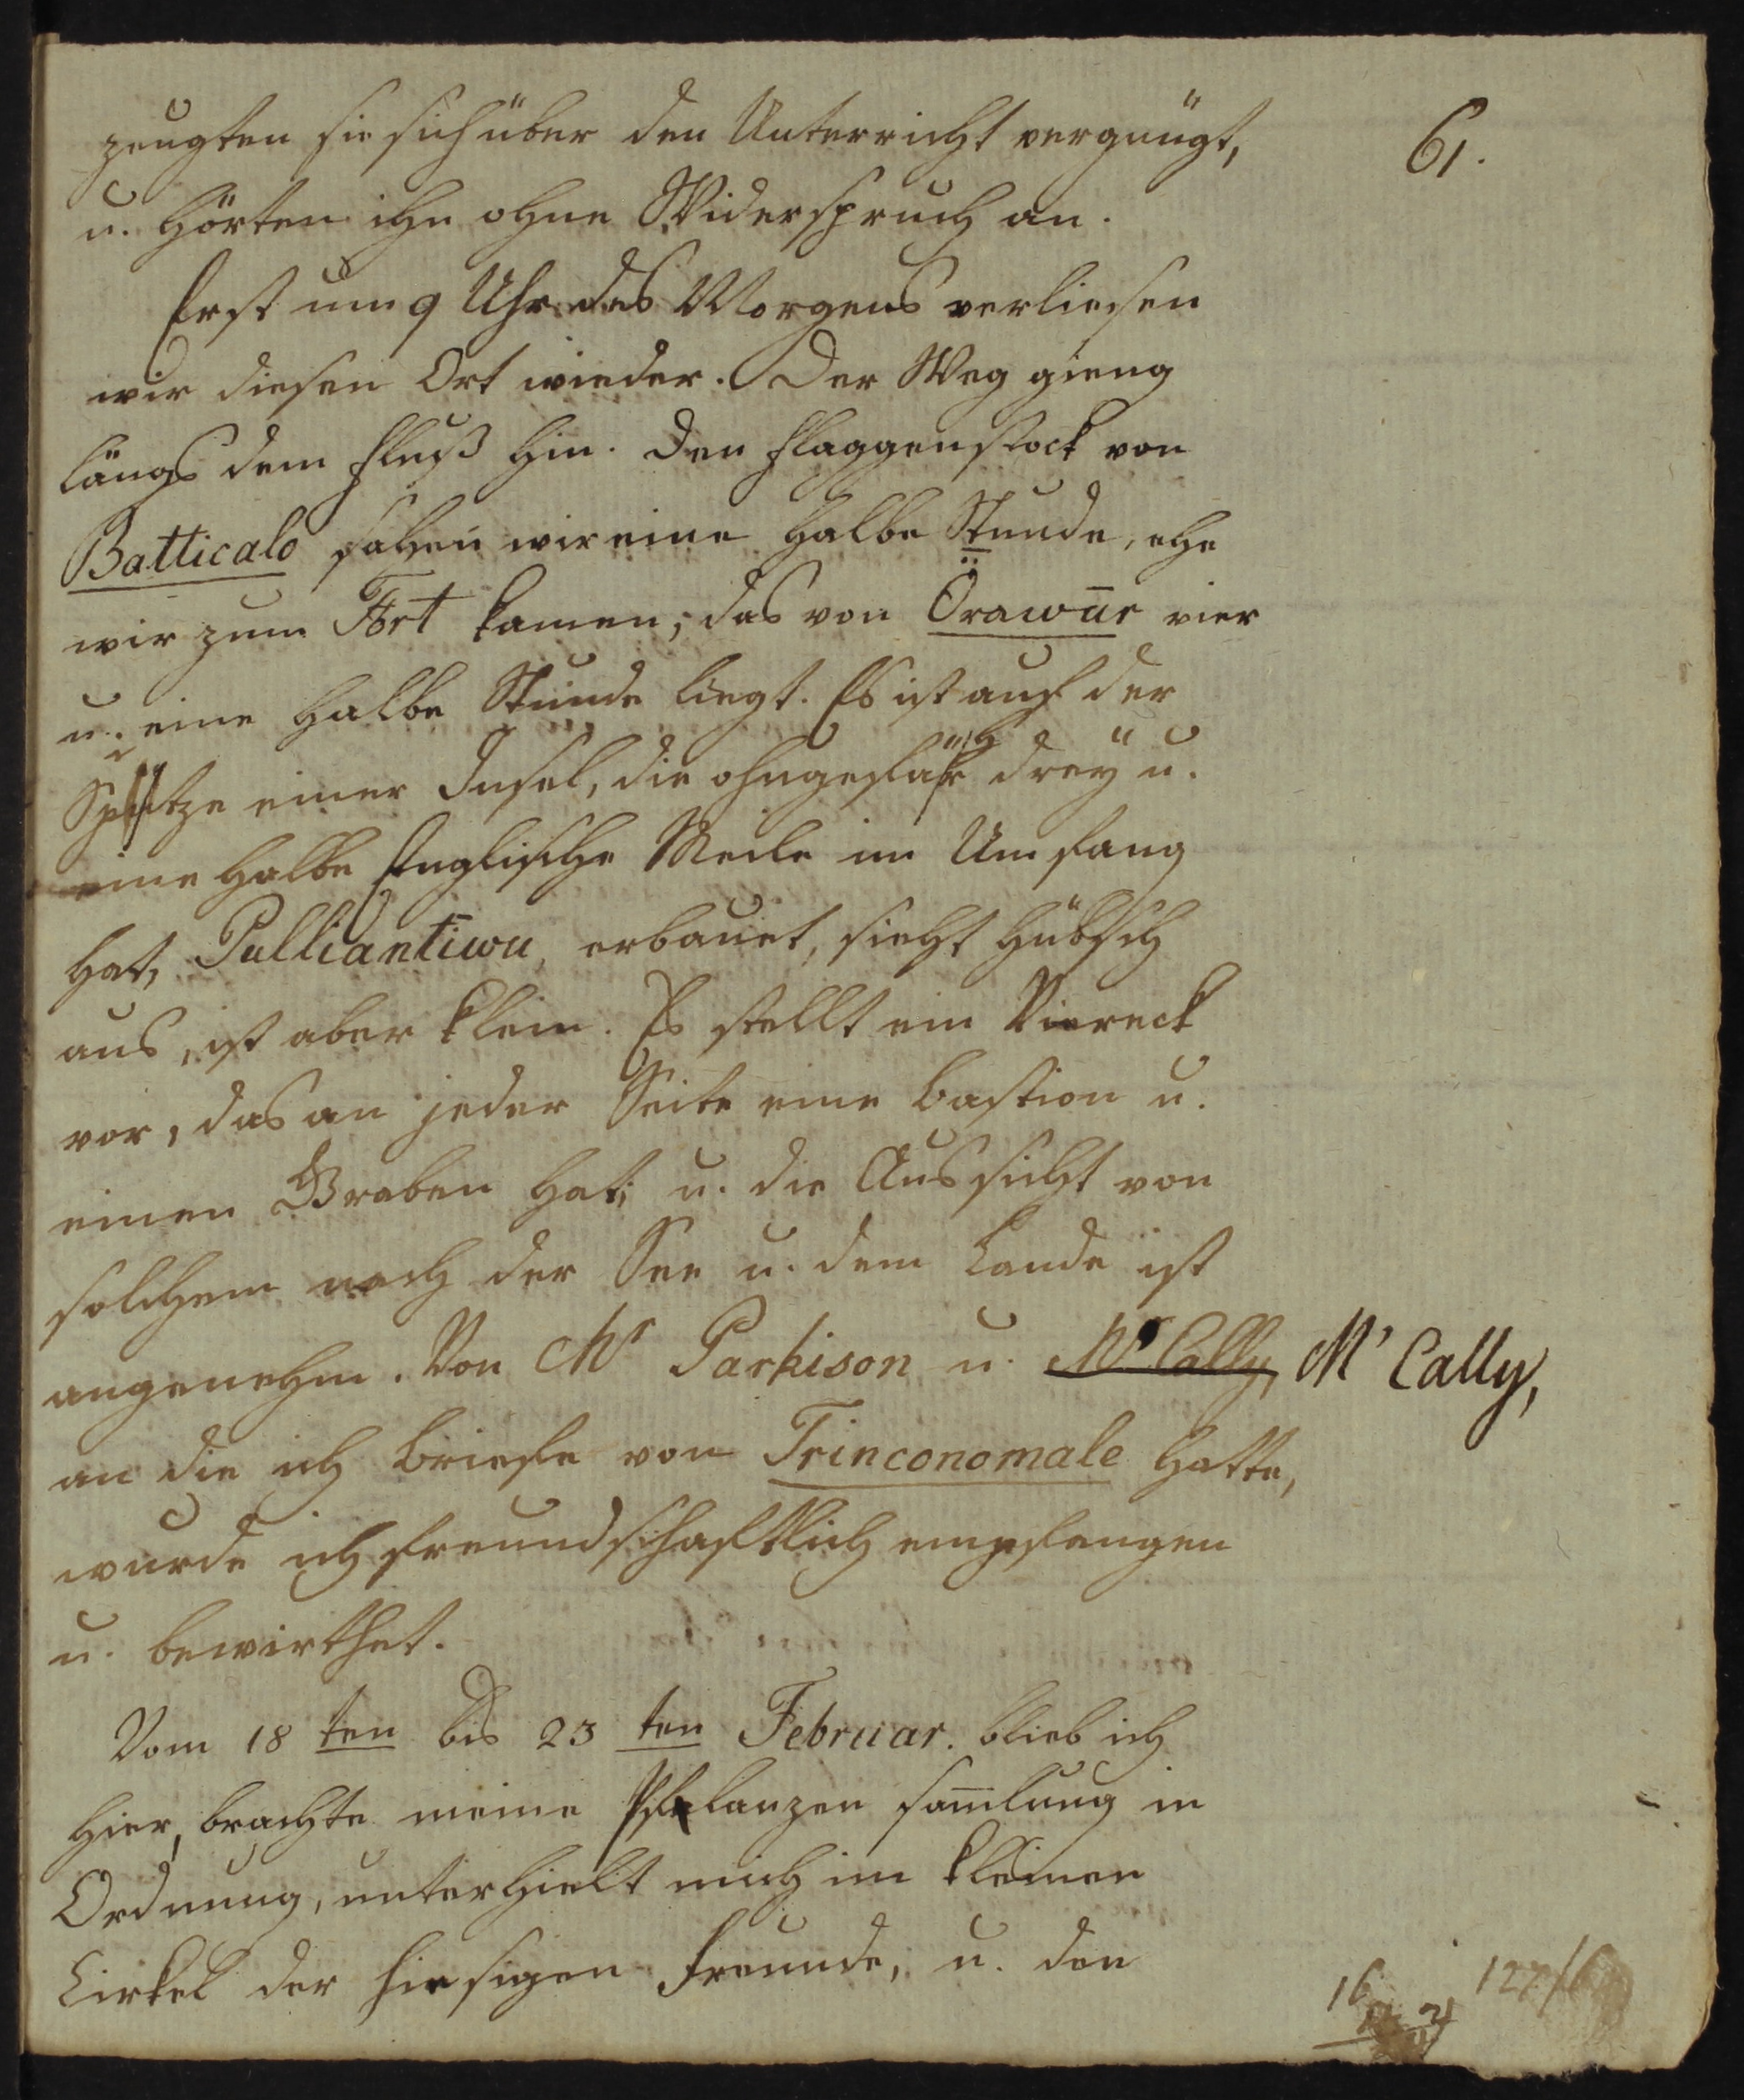 61.
zeugten sie sich über den Unterricht vergnügt,
u. hörten ihn ohne Widerspruch an.
Erst um 9 Uhr des Morgens verliesen
wir diesen Ort wieder. Der Weg gieng
längs dem Fluß hin. Den Flaggenstock von
Batticalo sahen wir eine halbe Stunde, ehe
wir zum Fort kamen, das von Örawūr vier
u. eine halbe Stunde liegt. Es ist auf der
Spitze einer Insel, die ohngefähr drey u.
eine halbe Englische Meile im Umfang
hat, Pulliantīwu, erbauet, sieht hübsch
aus, ist aber klein. Es stellt ein Viereck
vor, das an jeder Seite eine Bastion u.
einen Graben hat; u. die Aussicht von
solchem nach der See u. dem Lande ist
angenehm. Von Mr Parkison u. Mr Cally, Mr Cally,
an die ich Briefe von Trinconomale hatte,
wurde ich freundschaftlich empfangen
u. bewirthet.
Vom 18 ten bis 23 ten Februar. blieb ich
hier, brachte meine Pflanzen sam̄lung in
Ordnung, unterhielt mich im kleinen
Cirkel der hiesigen Freunde, u. den
16
127/6